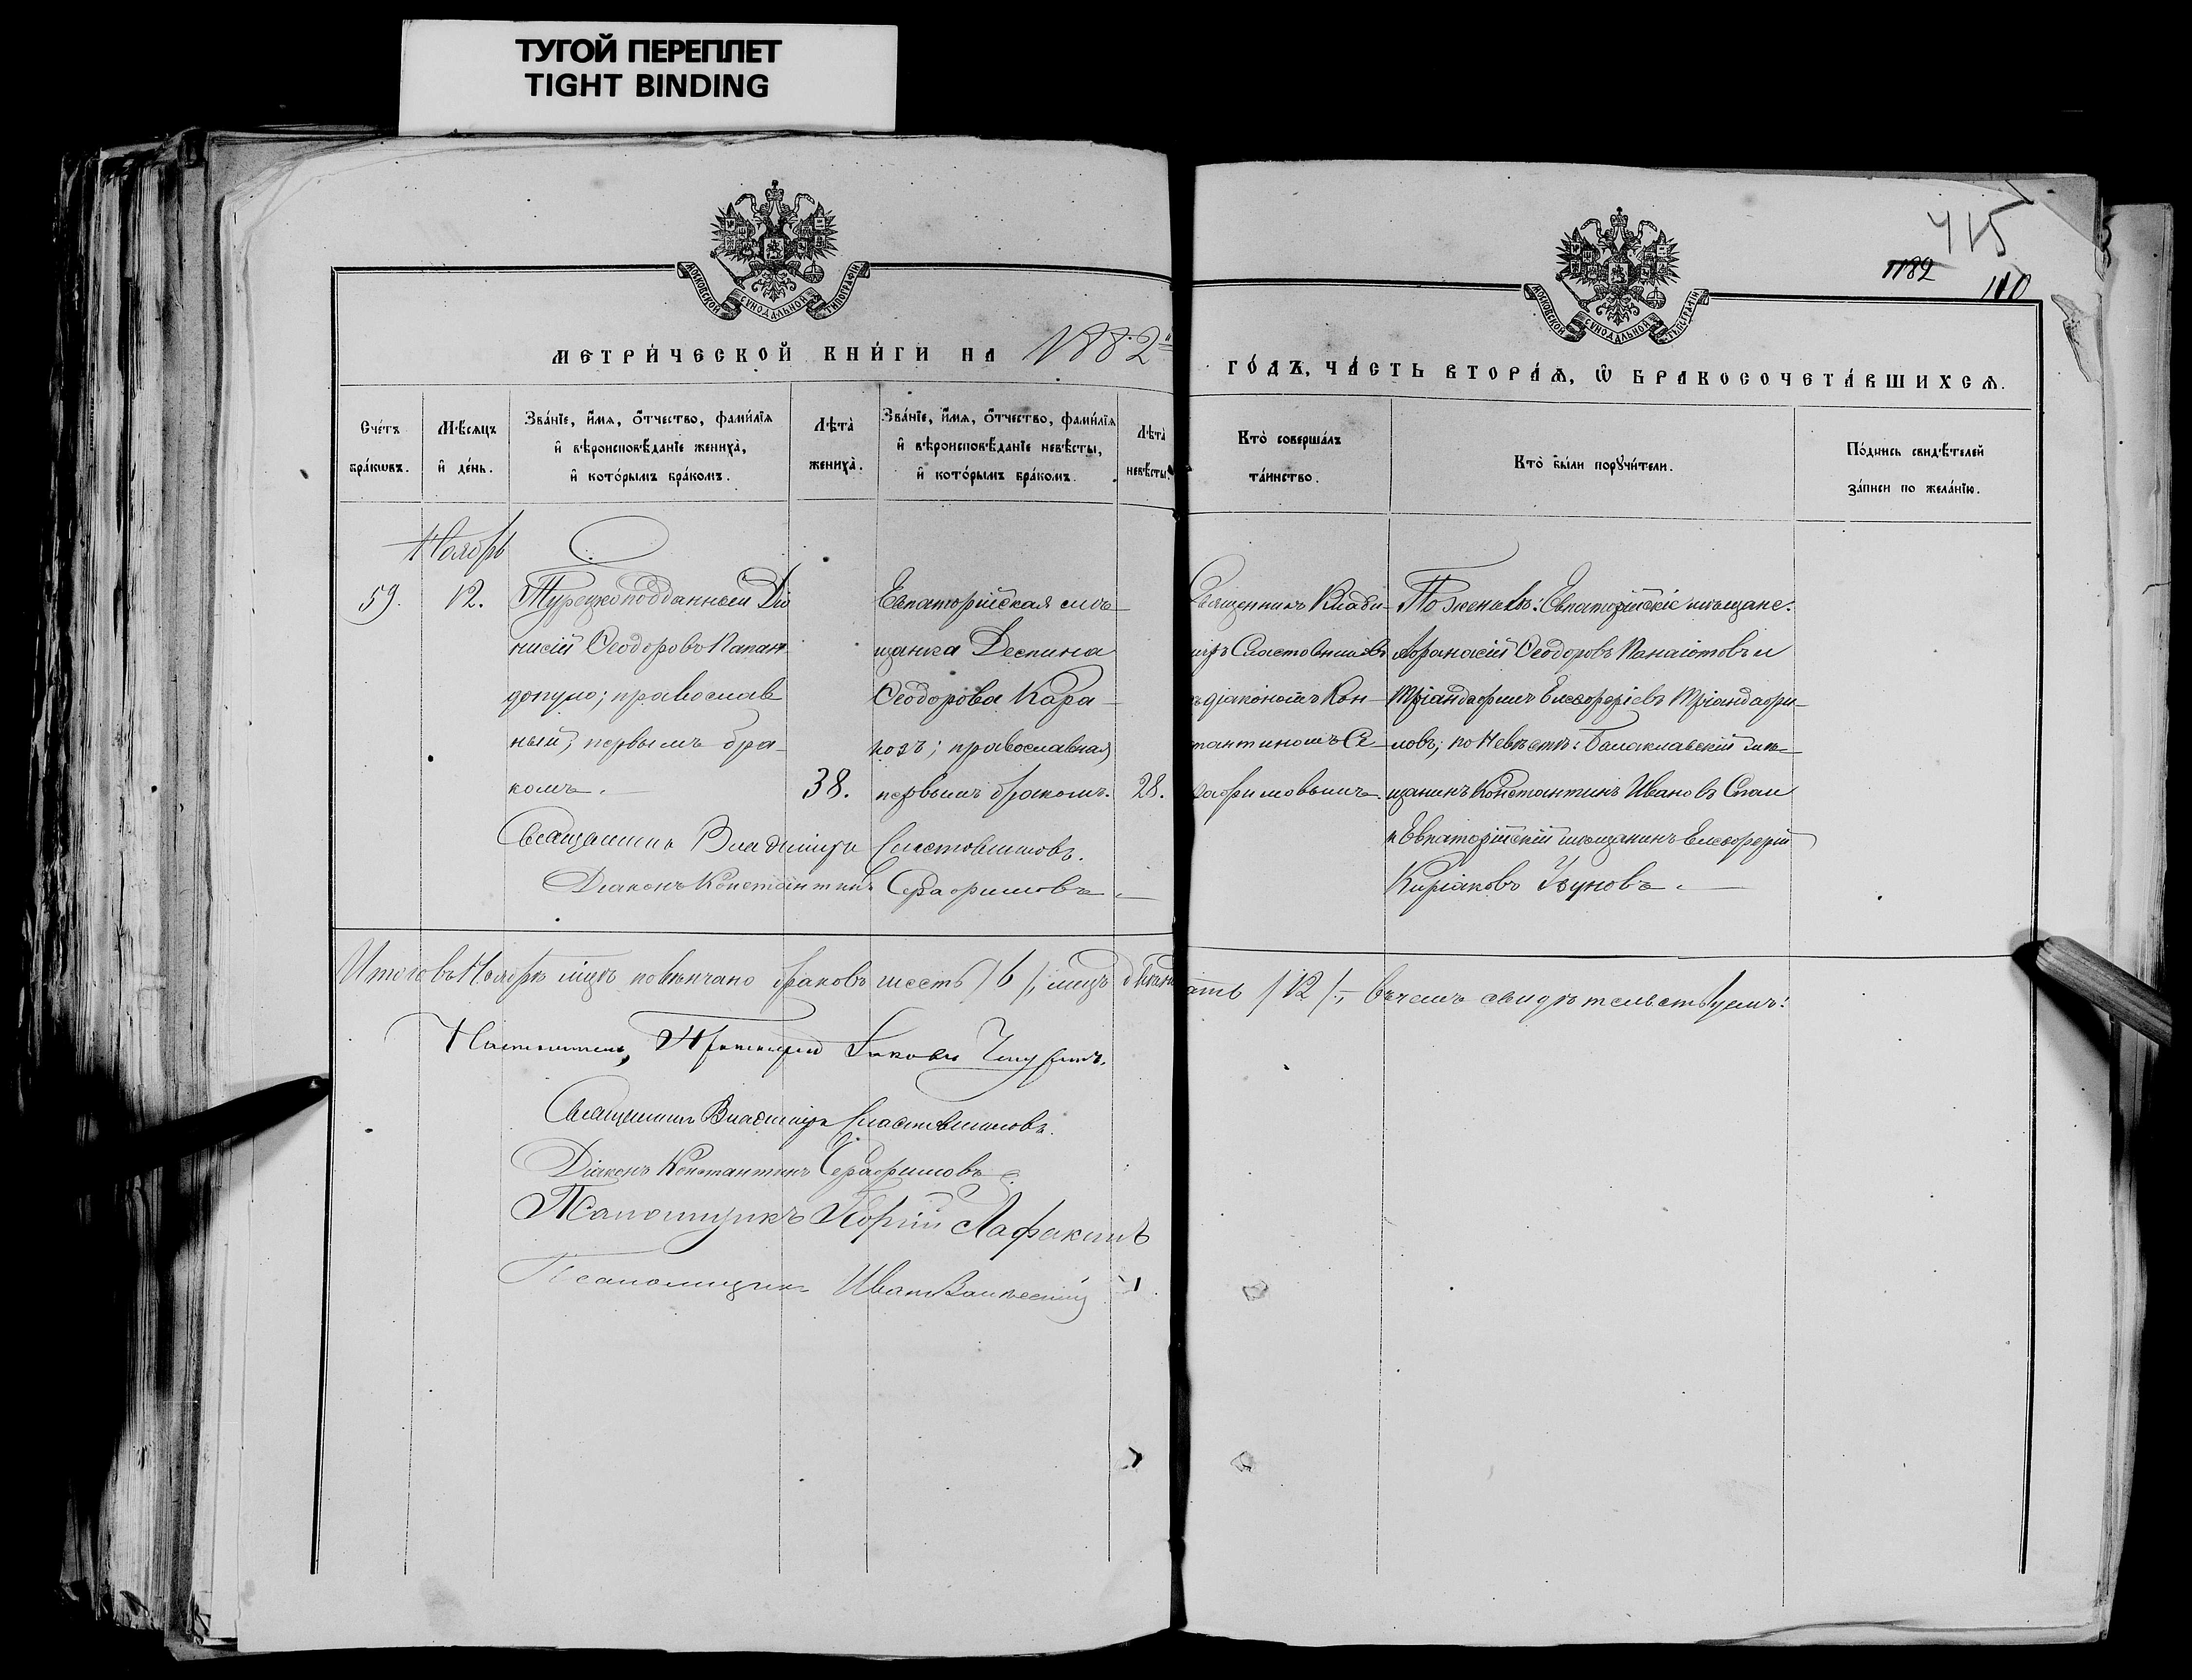 ТУГОЙ ПЕРЕПЛЕТ
TIGHT BINDING
МОСКОВСКОЙ СѴНОДАЛЬНОЙ ТИПОГРАФІИ
МОСКОВСКОЙ СѴНОДАЛЬНОЙ ТИПОГРАФІИ
415
1182
110
МЕТРИ́ЧЕСКОЙ КНИ́ГИ НА 1882
ГО́ДЪ, ЧА́СТЬ ВТОРА́Ѧ, Ѽ БРАКОСОЧЕТА́ВШИХСѦ.
Сче́тъ
бра́кѡвъ.
Мѣ́сяцъ
и҆ де́нь.
Зва́нїе, и҆́мѧ, о҆́тчество, фами́лїѧ
и҆ вѣроисповѣ́данїе жениха̀,
и҆ кото́рымъ бра́комъ.
Лѣта̀
жениха̀.
Зва́нїе, и҆́мѧ, о҆́тчество, фами́лїѧ
и҆ вѣроисповѣ́данїе невѣ́сты,
и҆ кото́рымъ бра́комъ.
Лѣта̀
невѣ́сты.
Кто̀ соверша́лъ
та́инство.
Кто̀ бы́ли порꙋчи́тели.
По́дпись свидѣ́телей
за́писи по жела́нїю.
Ноябрь
59.
12.
Турецкоподданный Діо
нисій Ѳеодоровъ Папан
допуло; православ
ный, первымъ бра-
комъ.
38.
Евпаторійская мѣ-
щанка Деспина
Ѳеодорова Кара-
козъ; православная
первымъ бракомъ.
28.
Священникъ Влади-
міръ Сластовниковъ
съ діакономъ Кон-
стантиномъ Се-
рафимовымъ.
По женихѣ: Евпаторійскіе мѣщане:
Аѳанасій Ѳеодоровъ Панаіотовъ и
Тріандафилъ Елевѳеріевъ Тріандафи-
ловъ; по Невѣстѣ: Балаклавскій мѣ-
щанинъ Константинъ Ивановъ
и Евпаторійскій мѣщанинъ Елевѳерій
Киріаковъ Узуновъ.
Священникъ Владиміръ Сластовниковъ.
Діаконъ Константинъ Серафимовъ
Итого въ Ноябрѣ м-цѣ повѣнчано браковъ шесть /6/, лицъ двѣнад
цать /12/, въ чемъ свидѣтельствуемъ:
Настоятель, Протоіерей Іаковъ
Священникъ Владиміръ Сластовниковъ.
Діаконъ Константинъ Серафимовъ
Псаломщикъ Георгій
Псаломщикъ Иванъ